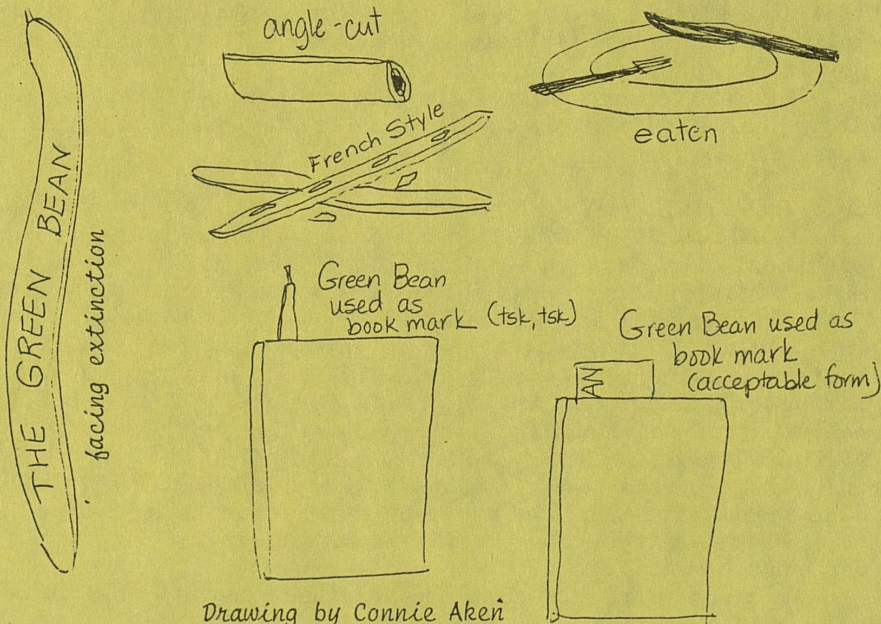 THE GREEN BEAN
facing extinction
angle-cut
French Style
eaten
Green Bean
used as
book mark (tsk, tsk)
Green Bean used as
book mark
(acceptable form)
AN
Drawing by Connie Aken